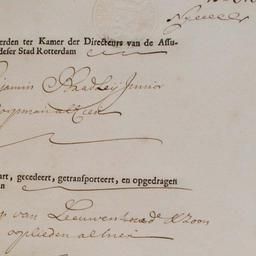 erden ter Kamer der Directeurs van de Assu-
deser Stad Rotterdam
jamin Bradley Junior
oopman alhier
art, gecedeert, getransporteert, en opgedragen
an
van Leeuwen
ooplieden alhier